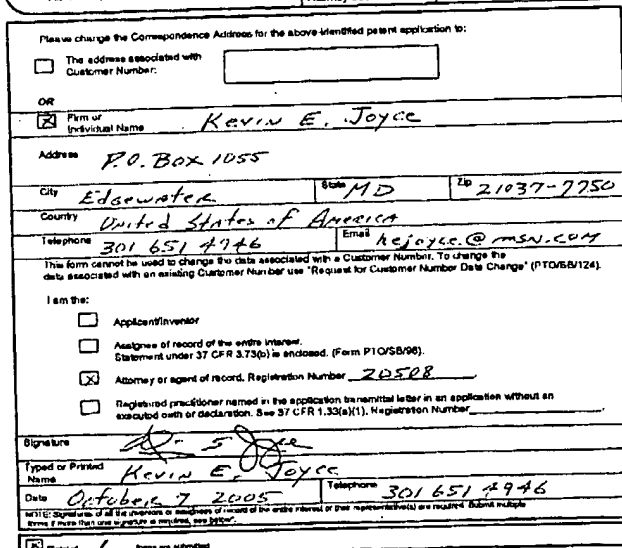 Please change the Correspondence Address for the above-identified patent application to:
The address associated with
Customer Number:
OR
Firm or
Individual Name Kevin E. Joyce
Address P.O. Box 1055
City Edgewater State MD Zip 21037-7750
Country United States of America
Telephone 301 651 4946 Email kejoyce@msn.com
This form cannot be used to change the data associated with a Customer Number. To change the
data associated with an existing Customer Number use "Request for Customer Number Data Change" (PTO/SB/124).
I am the:
Applicant/Inventor
Assignee of record of the entire interest.
Statement under 37 CFR 3.73(b) is enclosed. (Form PTO/SB/96).
Attorney or agent of record. Registration Number 20508
Registered practitioner named in the application transmittal letter in an application without an
executed oath or declaration. See 37 CFR 1.33(a)(1). Registration Number
Signature
Typed or Printed
Name Kevin E. Joyce
Date October 7 2005 Telephone 301 651 4946
NOTE: Signatures of all the inventors or assignees of record of the entire interest or their representative(s) are required. Submit multiple
forms if more than one signature is required, see below*.
forms are submitted